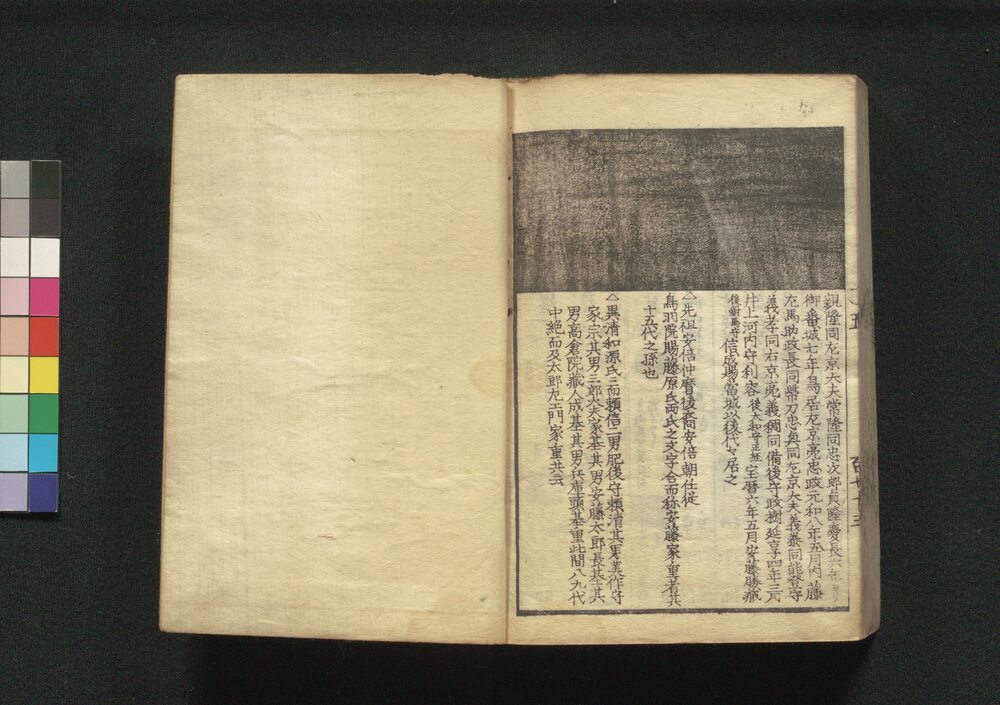 親隆同左京大夫常隆同忠次郎貞隆慶長六年
御番城七年鳥居左京亮忠政元和八年五月内藤
左馬助政長同帯刀忠興同左京大夫義泰同能登守
義孝同右京亮義稠同備後守政樹延享四年三月
井上河内守利容後大和守正経宝暦六年五月安藤藤蔵
後対馬守信成賜當城以後代々居之
△先祖安倍仲麿後裔安倍朝任従
鳥羽院賜藤原氏両氏之文字合而称安藤家重者其
十五代之孫也
△異清和源氏三而頼信二男肥後守頼清其男美作守
家宗其男三郎大夫家基其男安藤太郎長基其
男高倉院蔵人成基其男兵庫頭基重此間八九代
中絶而及太郎左エ門家重共云